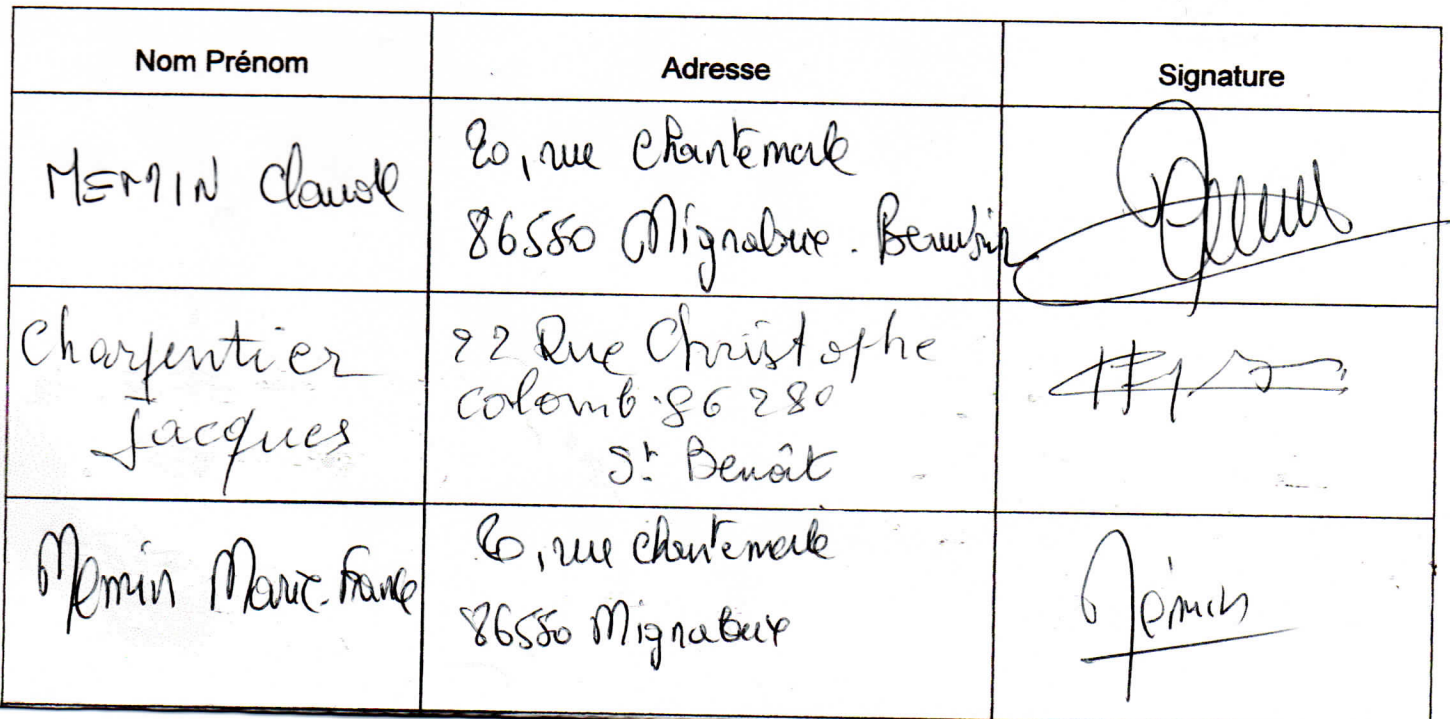 Nom Prénom Adresse Signature
MEMIN Claude
20, rue Chantemerle
86550 Mignaloux. Beauvoir
Charpentier
Jacques
22 Rue Christophe
colomb. 86280
St Benoît
Memin Marie-France
20, rue Chantemerle
86550 Mignaloux
Mémin